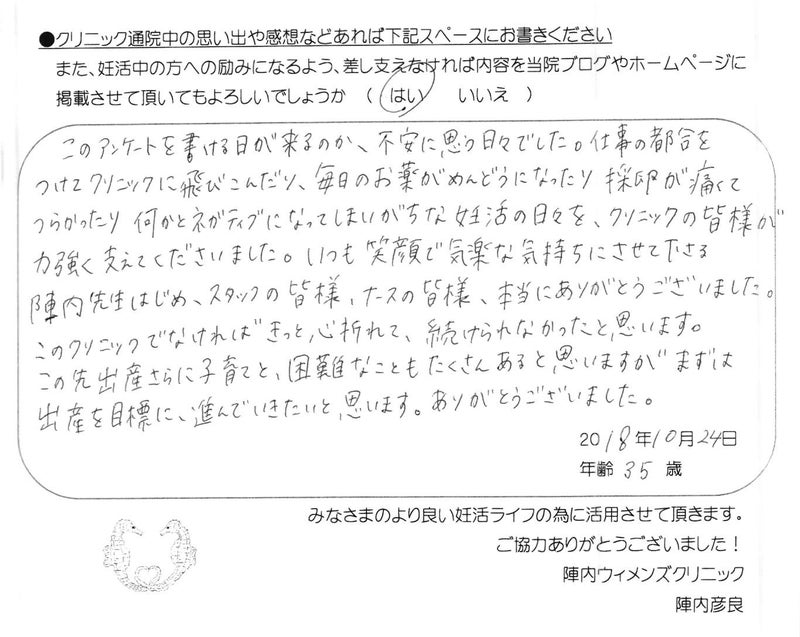 ●クリニック通院中の思い出や感想などあれば下記スペースにお書きください
また、妊活中の方への励みになるよう、差し支えなければ内容を当院ブログやホームページに
掲載させて頂いてもよろしいでしょうか （ はい　いいえ ）
このアンケートを書ける日が来るのか、不安に思う日々でした。仕事の都合を
つけてクリニックに飛びこんだり、毎日のお薬がめんどうになったり 採卵が痛くて
つらかったり 何かとネガティブになってしまいがちな妊活の日々を、クリニックの皆様が
力強く支えてくださいました。いつも笑顔で気楽な気持ちにさせて下さる
陣内先生はじめ、スタッフの皆様、ナースの皆様、本当にありがとうございました。
このクリニックでなければきっと心折れて、続けられなかったと思います。
この先出産さらに子育てと、困難なこともたくさんあると思いますがまずは
出産を目標に、進んでいきたいと思います。ありがとうございました。
2018年10月24日
年齢 35 歳
みなさまのより良い妊活ライフの為に活用させて頂きます。
ご協力ありがとうございました！
陣内ウィメンズクリニック
陣内彦良